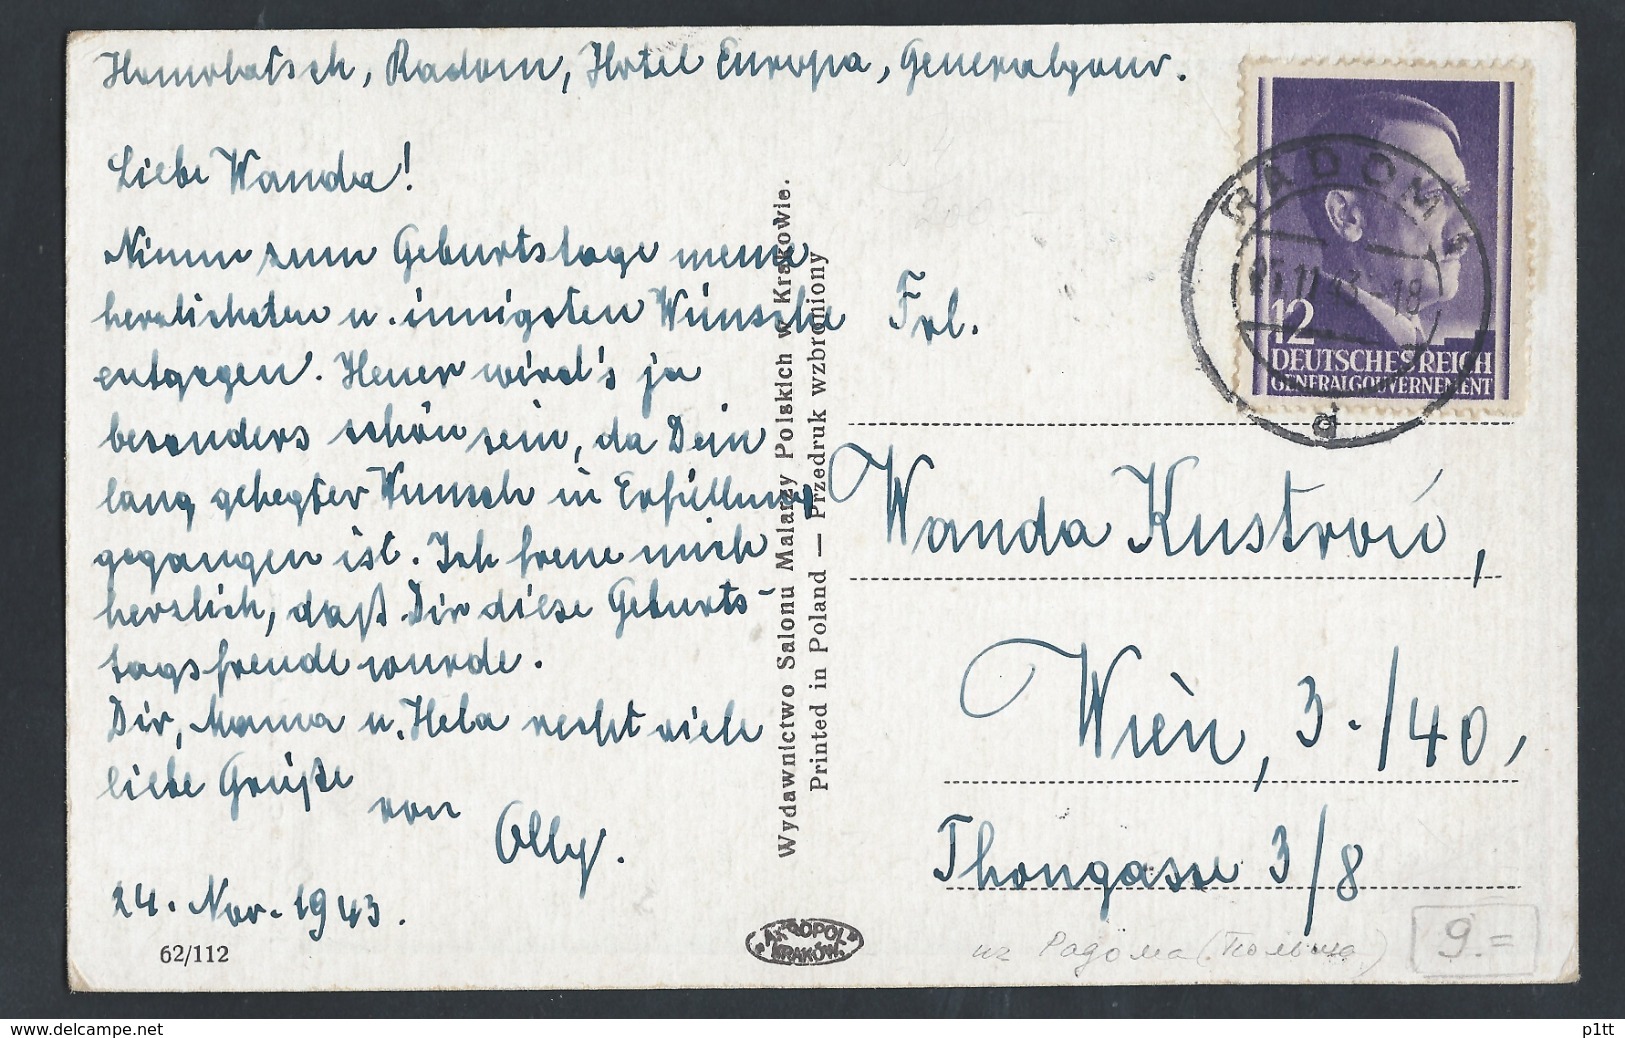 Homolatsch, Radom, Hotel Europa, Generalgouv.
Liebe Wanda!
Nimm zum Geburtstage meine
herzlichsten u. innigsten Wünsche
entgegen. Heuer wird's ja
besonders schön sein, da Dein
lang gehegter Wunsch in Erfüllung
gegangen ist. Ich freue mich
herzlich, daß Dir diese Geburts-
tagsfreude wurde.
Dir, Mama u. Hela recht viele
liebe Grüße
von
Olly.
24. Nov. 1943.
62/112
Wydawnictwo Salonu Malarzy Polskich w Krakowie.
Printed in Poland — Przedruk wzbroniony
"AKROPOL"
KRAKÓW
RADOM 1
25.11.43.-18
g
12
DEUTSCHES REICH
GENERALGOUVERNEMENT
Frl.
Wanda
Wien, 3.-/40,
Thongasse 3/8
из Радома (Польша)
9.=
www.delcampe.net
p1tt